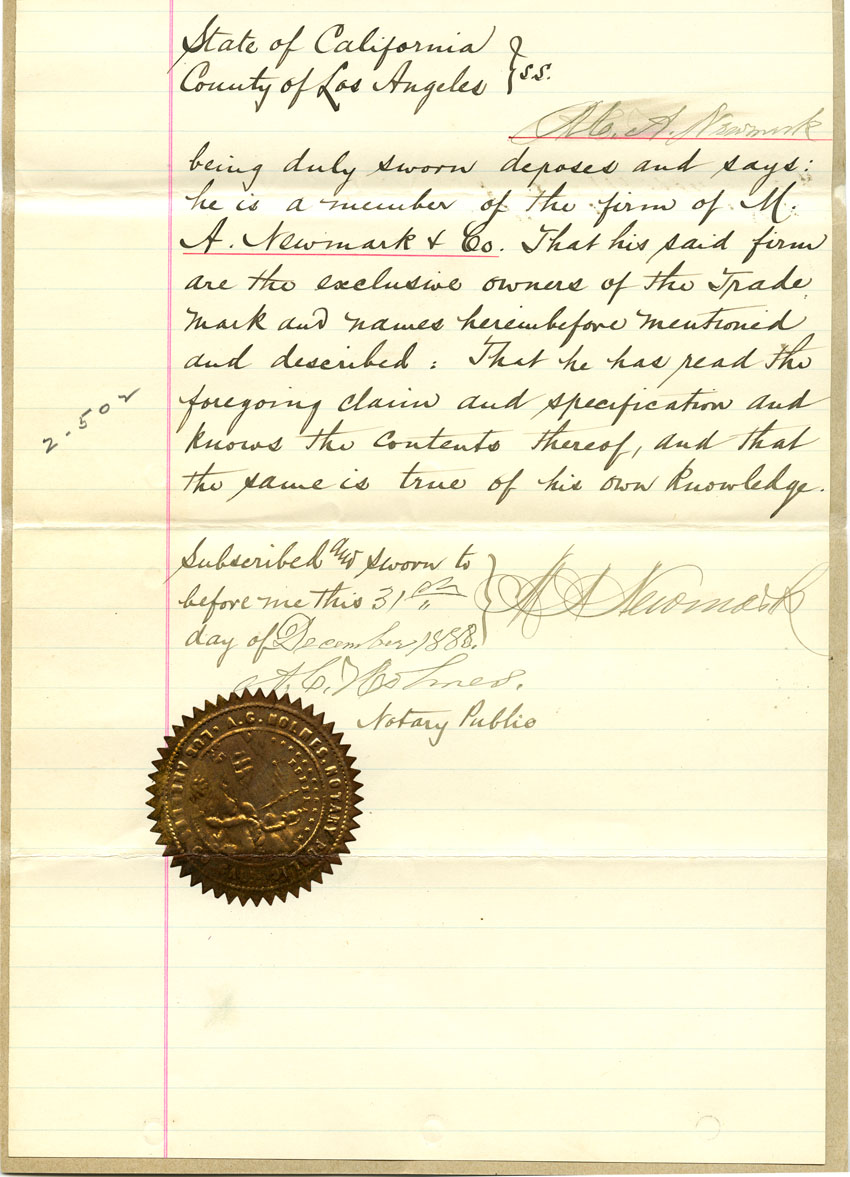 State of California
County of Los Angeles } s.s.
M. A. Newmark
being duly sworn deposes and says:
he is a member of the firm of M.
A. Newmark & Co. That his said firm
are the exclusive owners of the Trade
Mark and names hereinbefore mentioned
and described: That he has read the
foregoing claim and specification and
knows the contents thereof, and that
the same is true of his own knowledge.
2-502
Subscribed and sworn to
before me this 31st
day of December 1888.
M A Newmark
A. C. Holmes.
Notary Public
A. C. HOLMES. NOTARY PUBLIC